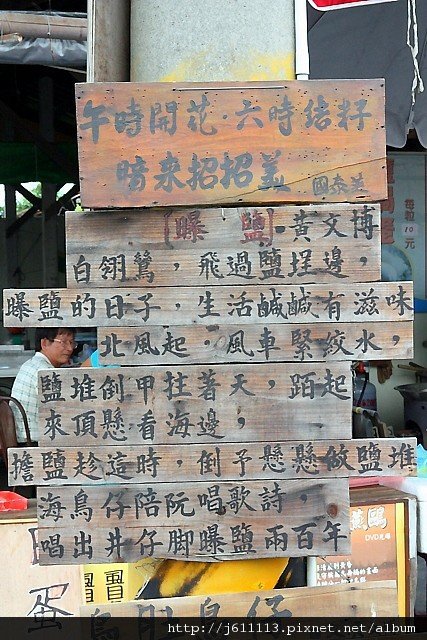 午時開花·六時結籽
暗來招招蓋 國泰兰
[曝 鹽] 黃文博
白翎鷥，飛過鹽埕邊，
曝鹽的日子，生活鹹鹹有滋味
北風起，風車緊絞水，
鹽堆倒甲拄著天，蹈起
來頂懸看海邊，
擔鹽趁這時，倒予懸懸做鹽堆
海鳥仔陪阮唱歌詩，
唱出井仔腳曝鹽兩百年
每粒10元
DVD光碟
蛋
http://j611113.pixnet.net/album